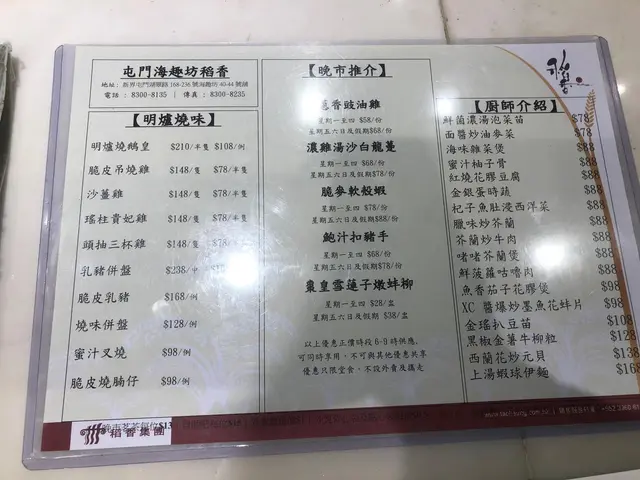 屯門海趣坊稻香
地址: 新界屯門湖翠路 168-236 號海趣坊 40-44 號舖
電話 : 8300-8135 | 傳真 : 8300-8235
【明爐燒味】
明爐燒鵝皇 $210/半隻 $108/例
脆皮吊燒雞 $148/隻 $78/半隻
沙薑雞 $148/隻 $78/半隻
瑤柱貴妃雞 $148/隻 $78/半隻
頭抽三杯雞 $148/隻 $78/半隻
乳豬併盤 $238/
脆皮乳豬 $168/例
燒味併盤 $128/例
蜜汁叉燒 $98/例
脆皮燒腩仔 $98/例
【晚市推介】
蔥香豉油雞
星期一至四 $58/份
星期五六日及假期$68/份
濃雞湯沙白龍躉
星期一至四 $68/份
星期五六日及假期$78/份
脆麥軟殼蝦
星期一至四 $78/份
星期五六日及假期$88/份
鮑汁扣豬手
星期一至四 $68/份
星期五六日及假期$78/份
棗皇雪蓮子燉蚌柳
星期一至四 $28/盅
星期五六日及假期 $38/盅
以上優惠正價時段 6-9 時供應,
可同時享用,不可與其他優惠共享
優惠只限堂食,不設外賣及攜走
【廚師介紹】
鮮菌濃湯泡菜苗 $78
面醬炒油麥菜 $78
海味雜菜煲 $88
蜜汁柚子骨 $88
紅燒花膠豆腐 $88
金銀蛋時蔬 $88
杞子魚肚浸西洋菜 $88
臘味炒芥蘭 $88
芥蘭炒牛肉 $88
啫啫芥蘭煲 $88
鮮菠蘿咕嚕肉 $88
魚香茄子花膠煲 $98
XC 醬爆炒墨魚花蚌片 $98
金瑤扒豆苗 $108
黑椒金薯牛柳粒 $128
西蘭花炒元貝 $138
上湯蝦球伊麵 $168
稻香集團